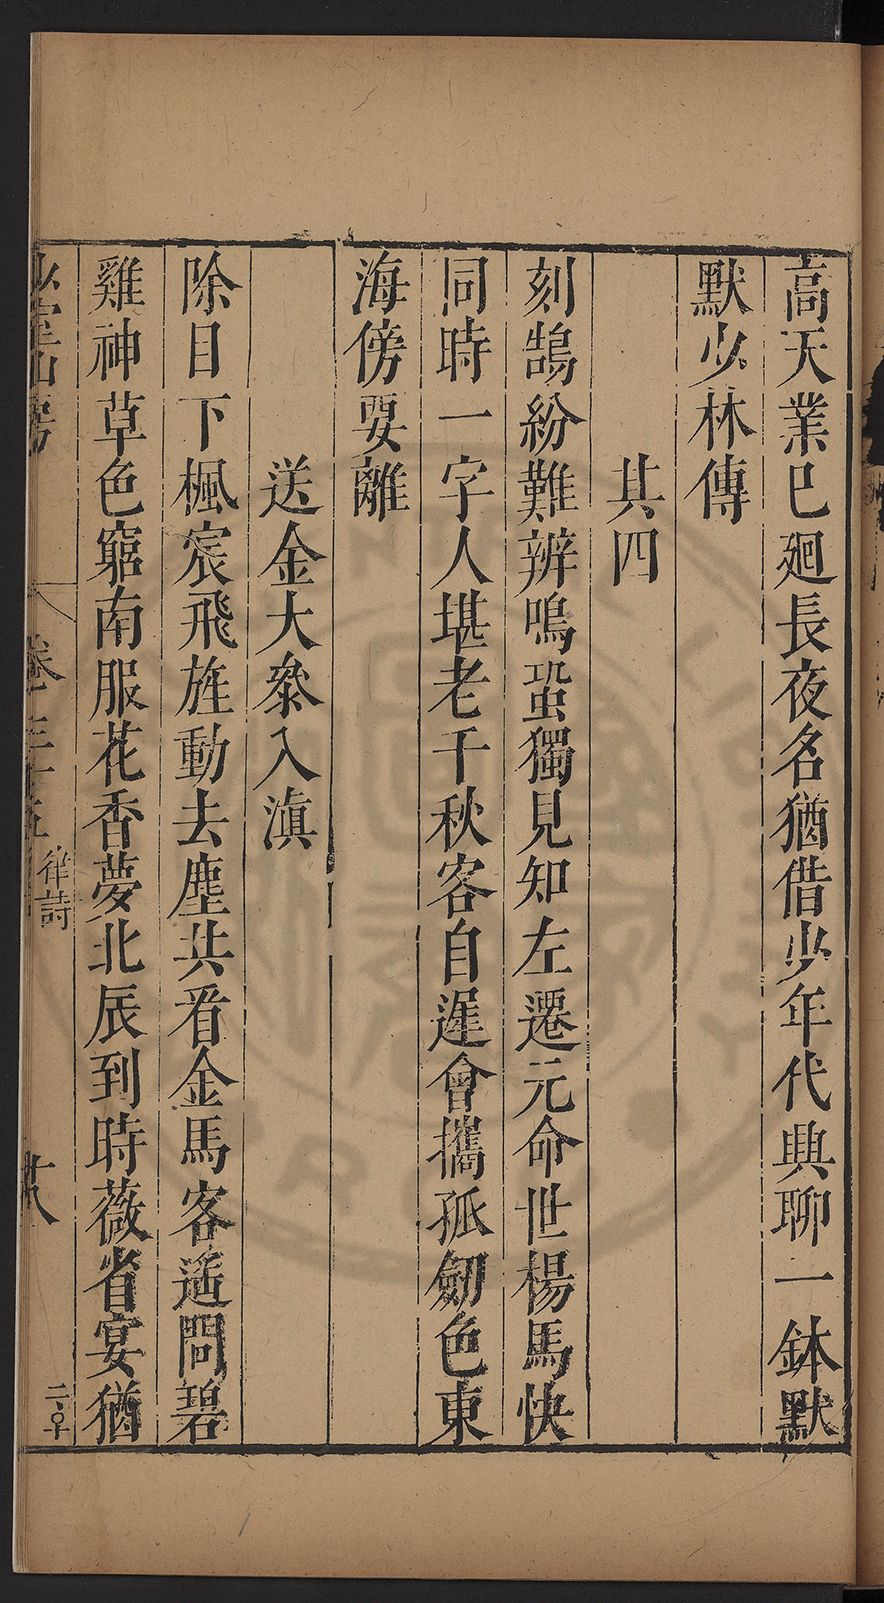 高天業巳廻長夜名猶借少年代興聊一鉢默
默少林傳
其四
刻鵠紛難辨鳴蛩獨見知左遷元命世楊馬快
同時一字人堪老千秋客自遲會攜孤劒色東
海傍要離
送金大叅入滇
除目下楓宸飛旌動去塵共看金馬客遥問碧
雞神草色窮南服花香夢北辰到時薇省宴猶
少室山房
卷三十五
律詩
廿八